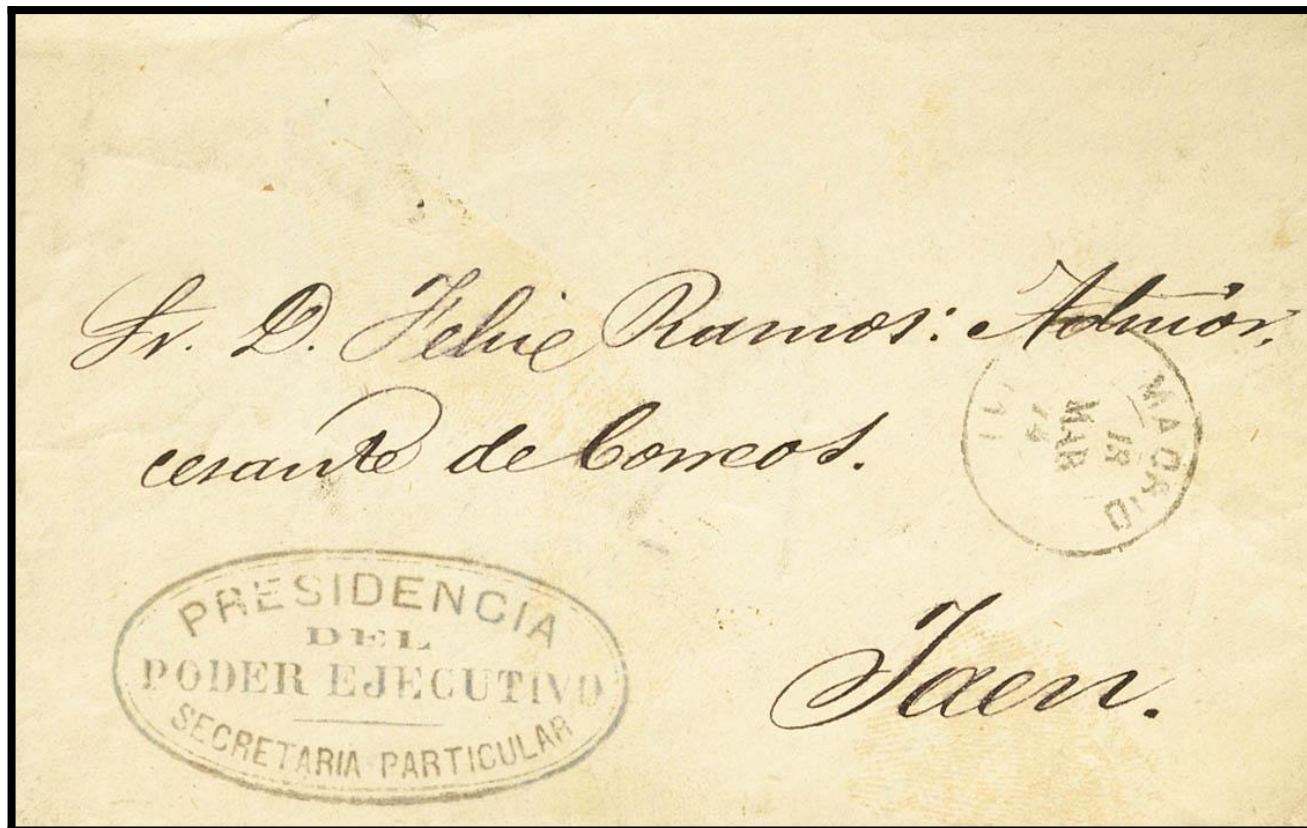 Sr. D. Felix Ramos: Admor.
cesante de Correos.
MADRID
18
MAR
74
Jaen.
PRESIDENCIA
DEL
PODER EJECUTIVO
SECRETARIA PARTICULAR